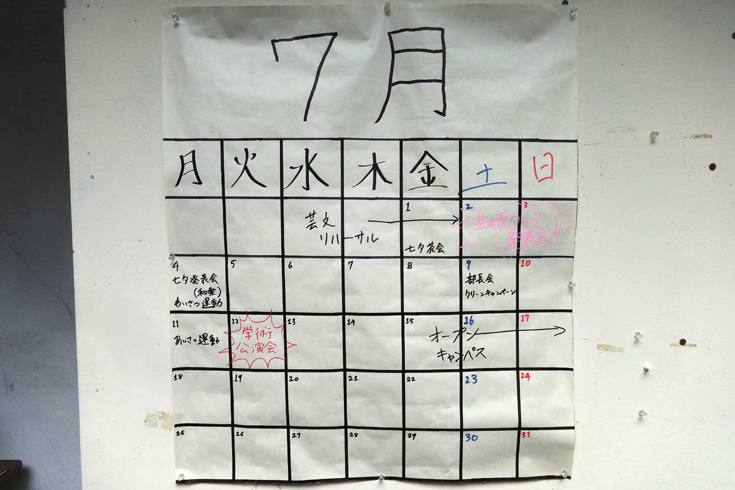 7月
月 火 水 木 金 土 日
1 2 3
芸文
リハーサル
七夕茶会
発表会
4 5 6 7 8 9 10
七夕発表会
(和楽)
あいさつ運動
部長会
クリーンキャンペーン
11 12 13 14 15 26 27
あいさつ運動
学術
公演会
オープン
キャンパス
18 19 20 21 22 23 24
25 26 27 28 29 30 31